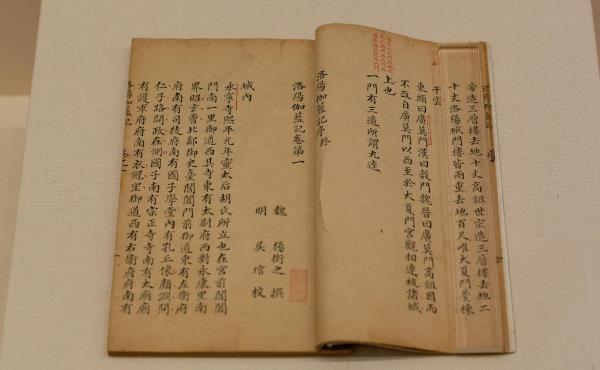 帝造三層樓去地十丈高祖世宗造三層樓去地二
十丈洛陽城門樓皆兩重去地百尺唯大夏門甍棟
干雲
東頭曰廣莫門漢曰穀門魏晉曰廣莫門高祖因而
不改自廣莫門以西至於大夏門宮觀相連被諸城
上也
一門有三道所謂九逵
洛陽伽藍記序終
洛陽伽藍記卷第一
魏 楊衒之 撰
明 吳琯 校
城內
永寧寺熙平元年靈太后胡氏所立也在宮前閶闔
門南一里御道西其寺東有太尉府西對永康里南
界昭玄曹北鄰御史臺閶闔門前御道東有左衛府
府南有司徒府南有國子學堂內有孔丘像顏淵問
仁子路問政在側國子南有宗正寺寺南有太廟廟
有護軍府府南有衣冠里御道西有右衛府府南有
洛陽伽藍記